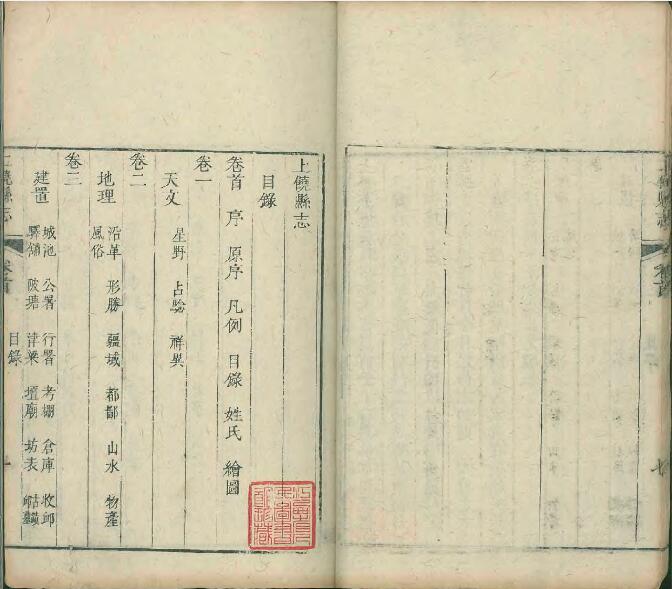 上饒縣志
目錄
卷首 序 原序 凡例 目錄 姓氏 繪圖
卷一
天文 星野 占驗 祥異
卷二
地理 沿革 形勝 疆域 都鄙 山水 物產
風俗
卷三
建置 城池 公署 行署 考棚 倉庫
驛舖 陂塘 津梁 壇廟 坊表
饒縣志 卷首 目錄